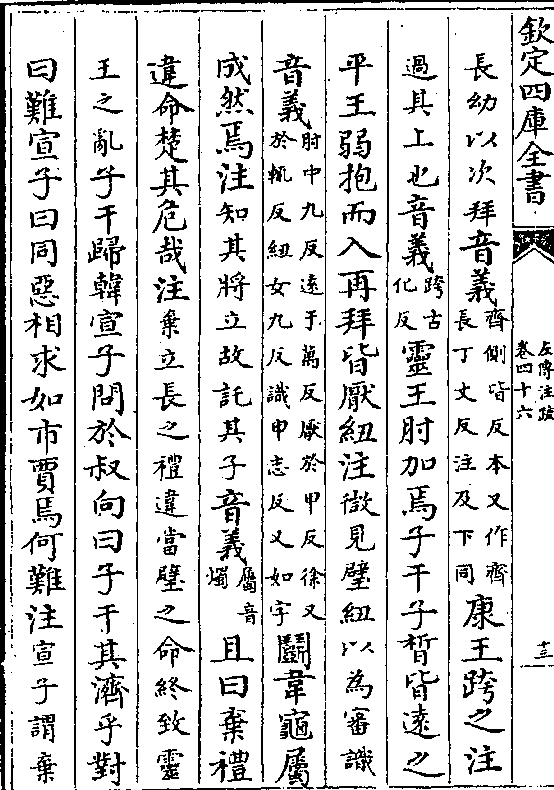 欽定四庫全書
左傳注疏
卷四十六
十三
長幼以次拜音義齊側皆反本又作齊長丁丈反注及下同康王跨之注
過其上也音義跨古化反靈王肘加焉子干子晳皆遠之
平王弱抱而入再拜皆厭紐注微見璧紐以為審識
音義肘中九反遠于萬反厭於甲反徐又於輒反紐女九反識申志反又如字鬭韋龜屬
成然焉注知其將立故託其子音義屬音燭且曰棄禮
違命楚其危哉注棄立長之禮違當璧之命終致靈
王之亂子干歸韓宣子問於叔向曰子干其濟乎對
曰難宣子曰同惡相求如市賈焉何難注宣子謂棄